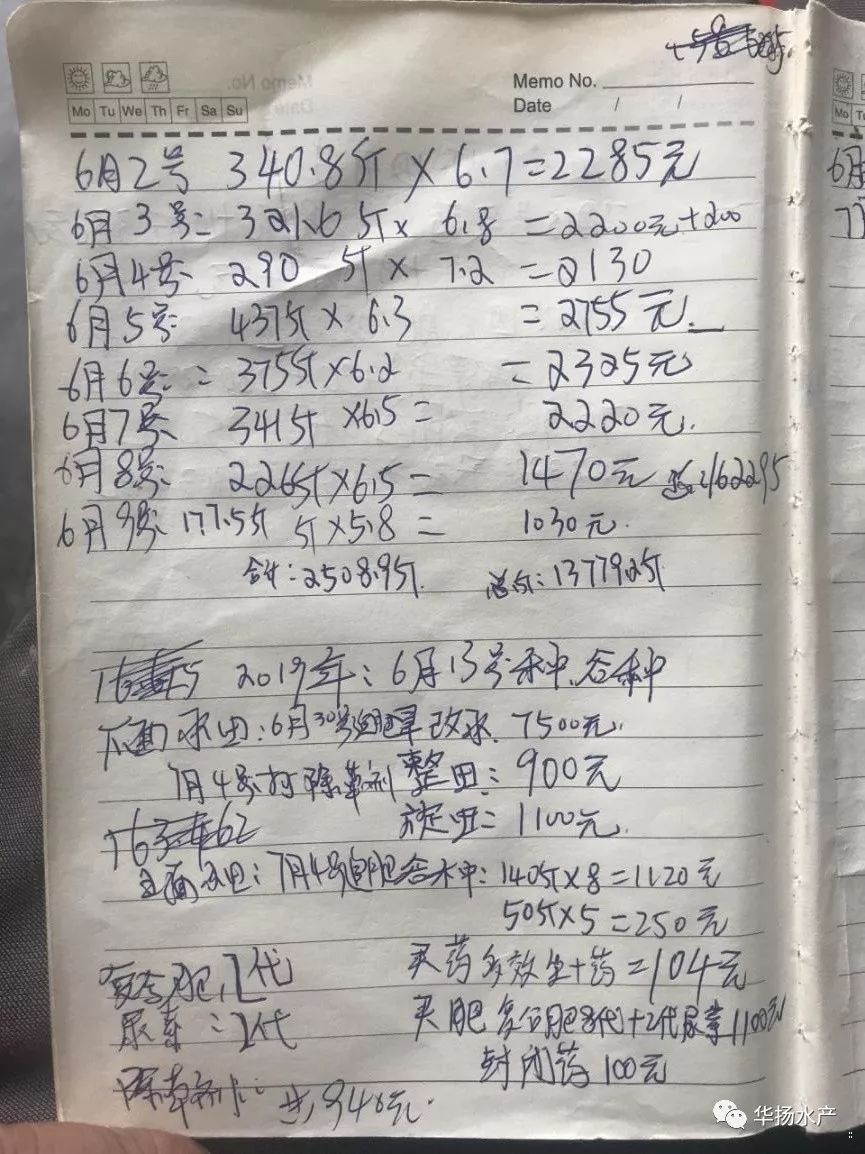 Memo No.
Mo Tu We Th Fr Sa Su
Date / /
6月2号 340.8斤×6.7=2285元
6月3号: 321.6斤× 6.8 =2200元+200
6月4号 290 斤× 7.2 =2130
6月5号 437斤× 6.3 =2755元
6月6号: =375斤×6.2 =2325元
6月7号 341斤 ×6.5= 2220元.
6月8号 226斤×6.5= 1470元 162295
6月9号 177.5斤 斤×5.8= 1030元.
合计:2508.9斤. 总斤:137792斤
2019年:6月13号 谷种
下面 田:6月30号 改 7500元.
7月4号打除草剂 整田: 900元
旋田= 1100元.
田:7月4号追肥谷种:140斤×8=1120元
50斤×5=250元
复合肥,2代 买药多效坐+药=104元
尿素=2代 买肥复合肥8代+2代尿素1100元
封闭药100元
除草剂 共,940元.
华扬水产